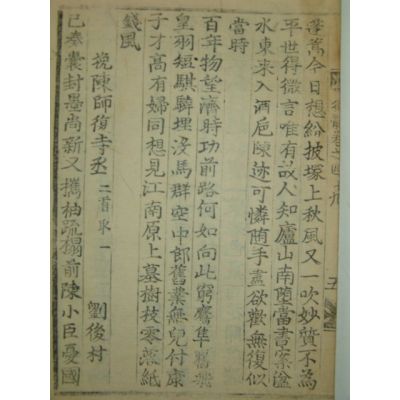 蓬蒿今日想紛披塚上秋風又一吹妙質不為
平世得微言唯有故人知廬山南墮當書案湓
水東来入酒巵陳迹可憐随手盡欲歡無復似
當時
百年物望濟時功前路何如向此窮鷹隼奮飛
皇羽短騏驎埋沒馬群空中郎舊業無兒付康
子才高有婦同想見江南原上墓樹枝零落紙
錢風
挽陳師復寺丞 二首取一 劉後村
已奉囊封墨尚新又攜袖疏榻前陳小臣憂國